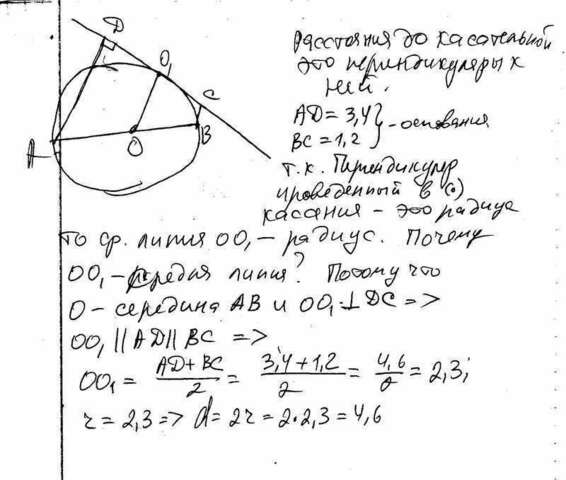 D
O₁
C
A
O
B
Расстояния до касательной
это перпендикуляры к
ней.
AD = 3,4
BC = 1,2
} - основания
т.к. Перпендикуляр
проведенный в (·)
касания - это радиус
то ср. линия OO₁ - радиус. Почему
OO₁ - средня линия? Потому что
O - середина AB и OO₁ ⊥ DC =>
OO₁ || AD || BC =>
OO₁ = AD + BC / 2 = 3,4 + 1,2 / 2 = 4,6 / 2 = 2,3;
r = 2,3 => d = 2r = 2·2,3 = 4,6